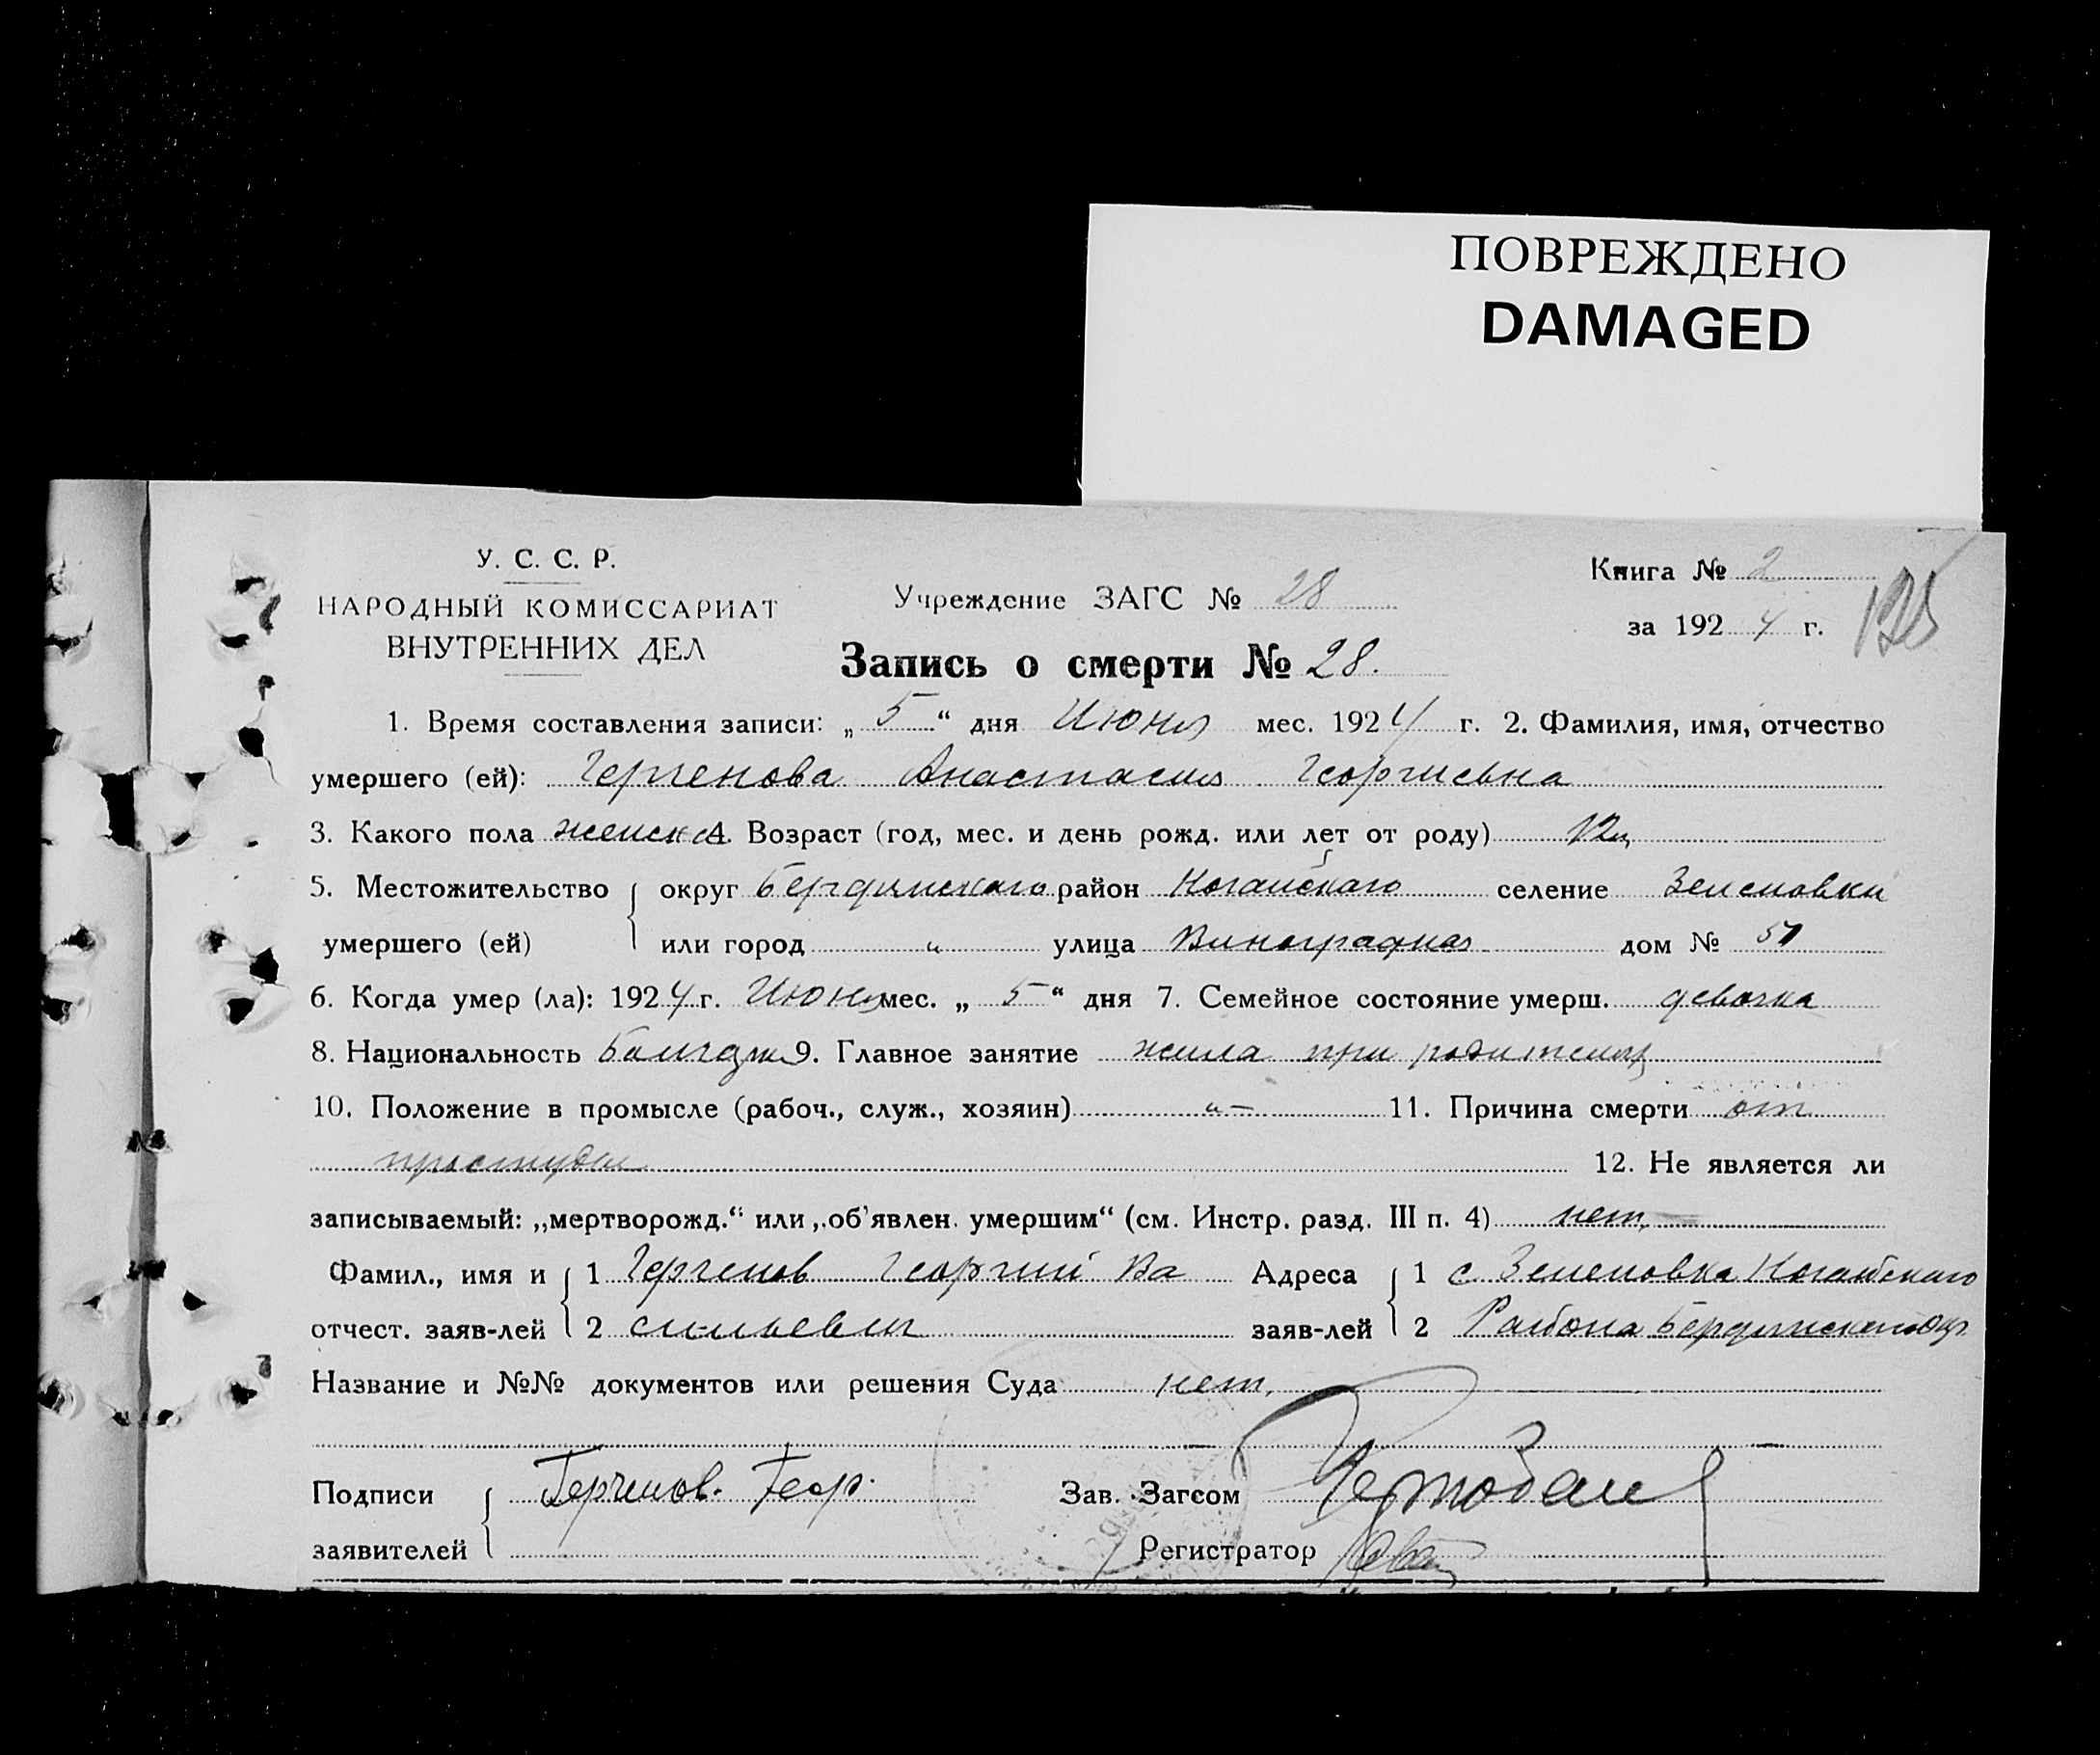 ПОВРЕЖДЕНО
DAMAGED
У. С. С. Р.
НАРОДНЫЙ КОМИССАРИАТ
ВНУТРЕННИХ ДЕЛ
Учреждение ЗАГС № 28
Книга № 2
за 1924 г.
Запись о смерти № 28.
1. Время составления записи: „ 5 “ дня Июня мес. 1924 г. 2. Фамилия, имя, отчество
умершего (ей): Герченова Анастасия Георгиевна
3. Какого пола женск 4. Возраст (год, мес. и день рожд. или лет от роду)
5. Местожительство округ Бердянского район Ногайского селение Зеленовки
умершего (ей) или город „ улица Виноградная дом № 51
6. Когда умер (ла): 1924 г. Июня мес. „ 5 “ дня 7. Семейное состояние умерш. девочка
8. Национальность 9. Главное занятие жила при родителях
10. Положение в промысле (рабоч., служ., хозяин) „ — 11. Причина смерти от
простуды 12. Не является ли
записываемый: „мертворожд.“ или „об’явлен. умершим“ (см. Инстр. разд. III п. 4) нет,
Фамил., имя и 1 Герченов Георгий Ва Адреса 1 с Зеленовка Ногайского
отчест. заяв-лей 2 сильевич заяв-лей 2 Района Бердянского Окр.
Название и №№ документов или решения Суда нет,
Подписи Герченов. Геор. Зав. Загсом
заявителей Регистратор